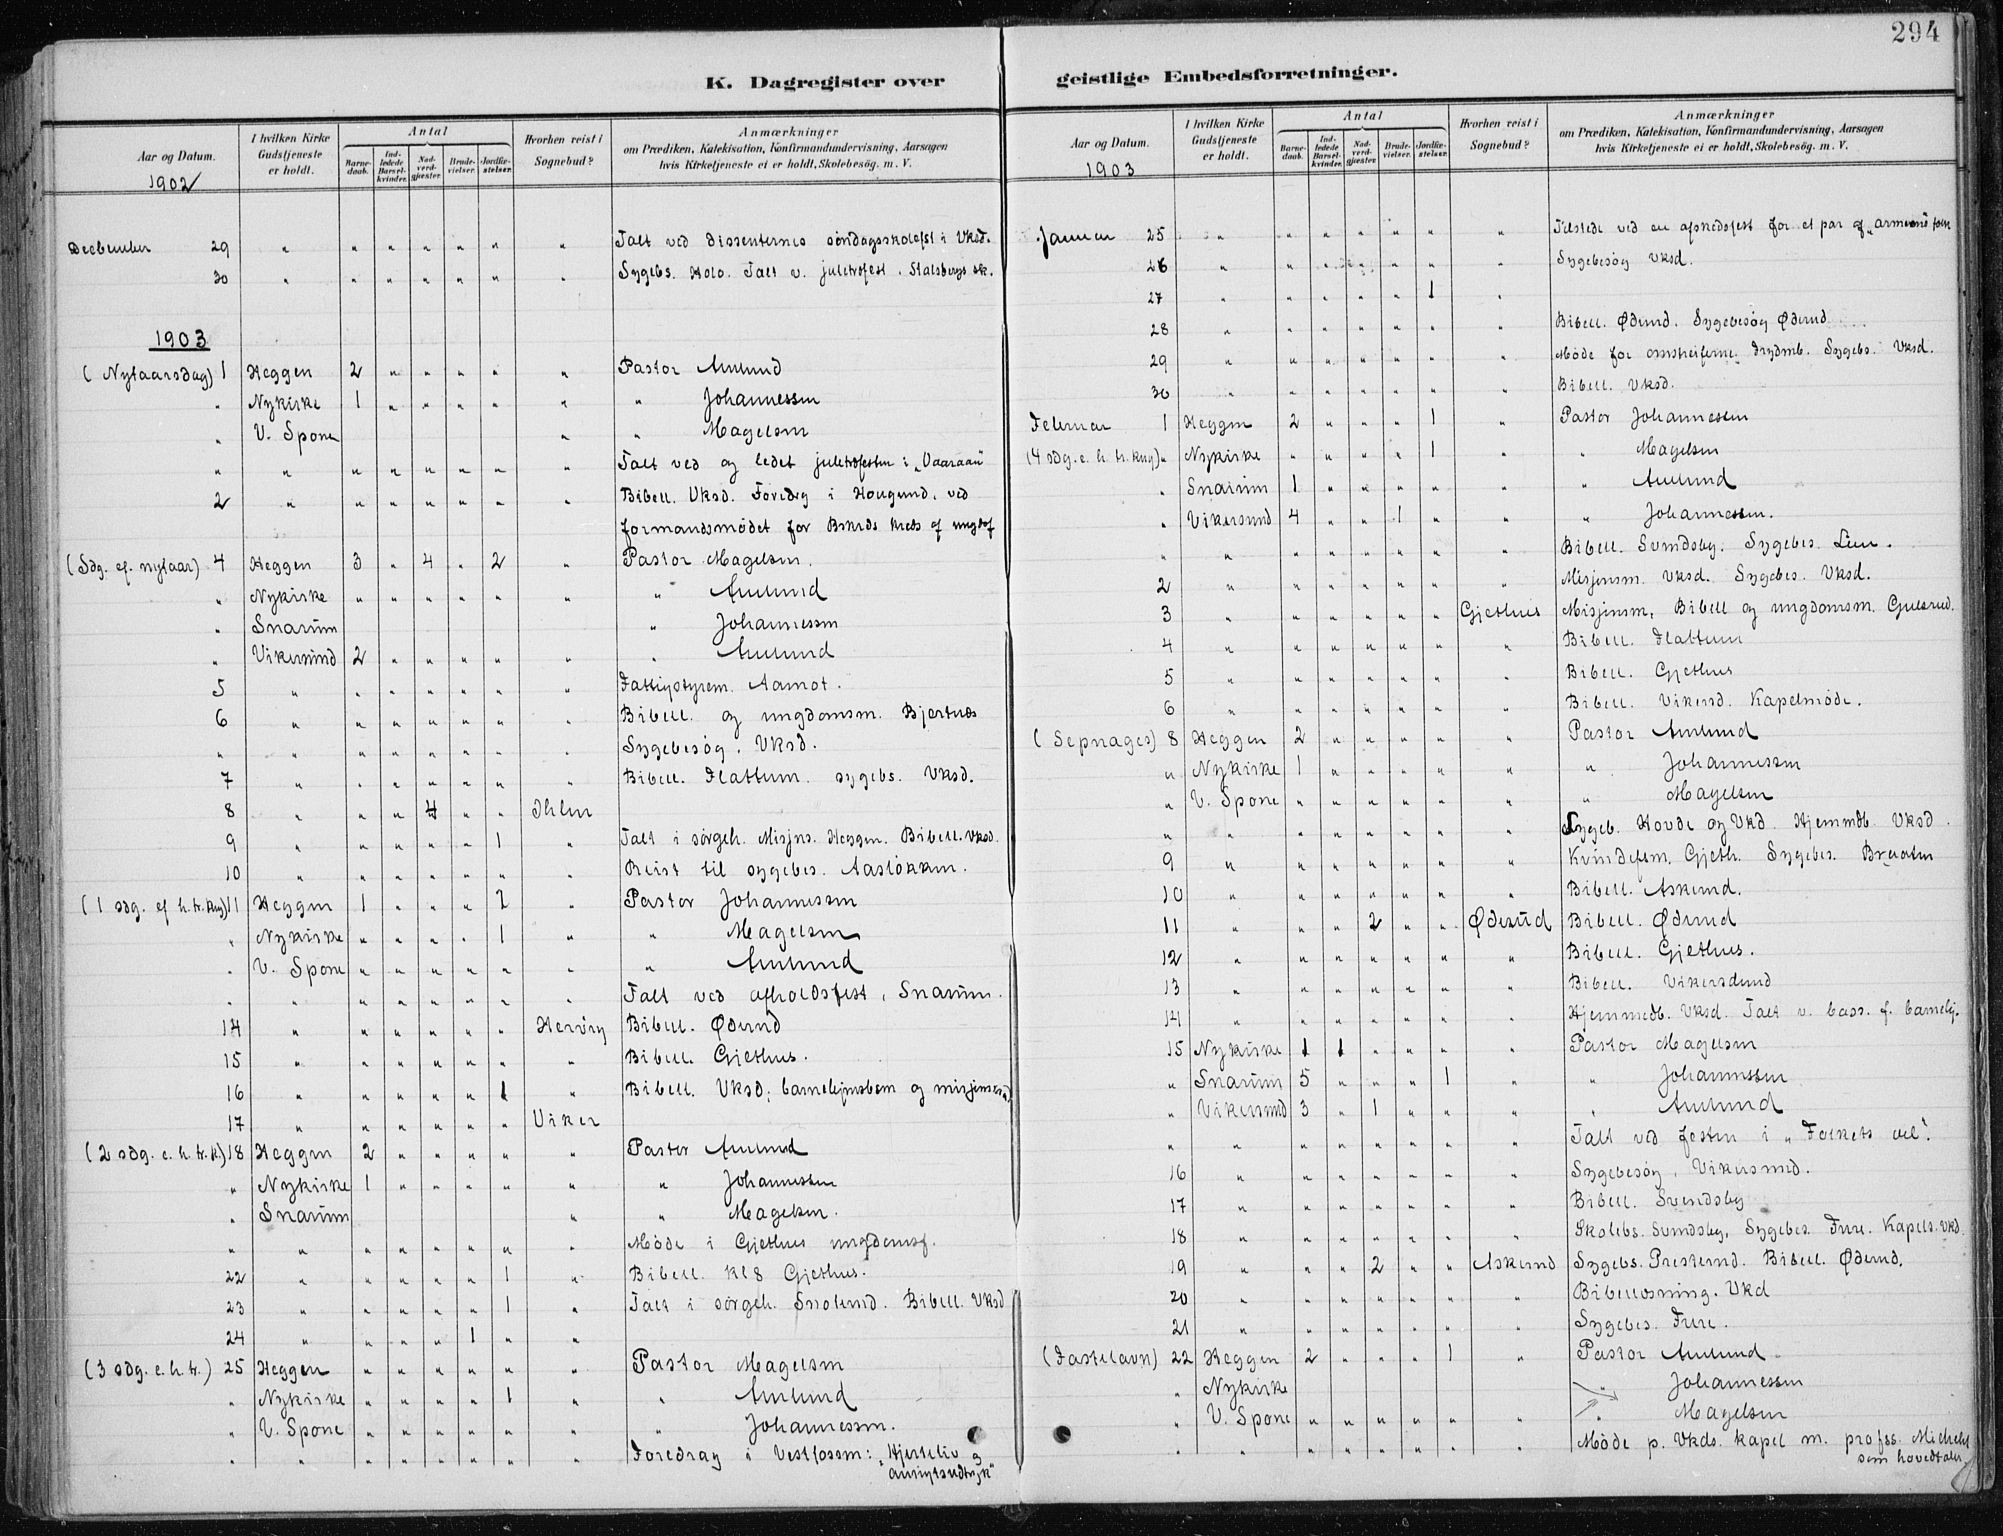 294
K. Dagregister over
geistlige Embedsforretninger.
Aar og Datum.
I hvilken Kirke Gudstjeneste er holdt.
Antal
Barnedaab.
Indledede Barselkvinder.
Nadverdgjester.
Brudevielser.
Jordfæstelser.
Hvorhen reist i Sognebud?
Anmærkninger
om Prædiken, Katekisation, Konfirmandundervisning, Aarsagen
hvis Kirketjeneste ei er holdt, Skolebesög. m. V.
1902
December 29 " " " " " " " Talt ved dissenternes søndagsskolefest i Vksd.
30 " " " " " " " Sygebs. Holo. Talt v. juletrefest i Stalsbergs sk.
1903
(Nytaarsdag) 1 Heggen 2 " " " " " Pastor Amlund
" Nykirke 1 " " " " " " Johannessen
" V. Spone " " Magelsen
" " " " " " " " Talt ved og ledet juletrefesten i "Vaaraan"
2 " " " " " " " Bibell. Vksd. Foredrg i Hougsund. ved
formandsmødet for Bskrds kreds af ungdsf
(Sdg. ef. nytaar) 4 Heggen 3 " 4 " 2 " Pastor Magelsen.
" Nykirke " " " " " " " Amlund
" Snarum " Johannessen
" Vikersund 2 " " " " " " Amlund
5 " " " " " " " Fattigstyrem. Aamot.
6 " " " " " " " Bibell. og ungdomsm. Bjertnæs
" " " " " " " " Sygebesøg. Vksd.
7 " " " " " " " Bibell. Flattum. sygebs. Vksd.
8 " " " 4 " " Ihlen
9 " " " " " 1 " Talt i sørgeh. Misjns. Heggen. Bibell. Vksd.
10 " " " " " " " Reist til sygebes. Aasløkken.
(1 sdg. ef h. tr. kng) 11 Heggen 1 " " " 2 " Pastor Johannessen
" Nykirke " " " " 1 " " Magelsen
" V. Spone " " " " " " " Amlund
" " " " " " " " Talt ved afholdsfest i Snarum.
14 " " " " " " Hervig Bibell. Øderud
15 " " " " " " " Bibell. Gjethus.
16 " " " " " 1 " Bibell. Vksd;
17 " " " " " " Viker
(2 sdg. e. h. tr. k.) 18 Heggen 2 " " " " " Pastor Amlund
" Nykirke 1 " " " " " " Johannessen
" Snarum " " Magelsen.
" " " " " " " " Møde i Gjethus ungdomsf.
22 " " " " " 1 " Bibell. kl 8 Gjethus.
23 " " " " " 1 " Talt i sørgeh. Bibell. Vksd
24 " " " " 1 " "
(3 sdg. e. h. tr.) 25 Heggen " " " " " " Pastor Magelsen
" Nykirke " " " " 1 " " Amlund
" V. Spone " " " " " " " Johannessen.
" " " " " " " " Foredrag i Vestfossen: "Hjerteliv og
ansigtsudtryk"
Aar og Datum.
I hvilken Kirke Gudstjeneste er holdt.
Antal
Barnedaab.
Indledede Barselkvinder.
Nadverdgjester.
Brudevielser.
Jordfæstelser.
Hvorhen reist i Sognebud?
Anmærkninger
om Prædiken, Katekisation, Konfirmandundervisning, Aarsagen
hvis Kirketjeneste ei er holdt, Skolebesög. m. V.
1903
Januar 25 " " " " " " " Tilstede ved en afskedsfest for et par af
26 " " " " " " " Sygebesøg Vksd.
27 " " " " " 1 "
28 " " " " " " " Bibell. Øderud. Sygebesøg Øderud
29 " " " " " " " Møde for omstreiferne. Sygebs. Vksd.
30 " " " " " " " Bibell. Vksd.
Februar 1 Heggen 2 " " " 1 " Pastor Johannessen
(4 sdg. e. h. tr. kng) " Nykirke " " " " 1 " " Magelsen
" Snarum 1 " " " " " " Amlund
" Vikersund 4 " " 1 " " " Johannessen.
" " " " " " " " Bibell. Svendsby. Sygebes. Lien.
2 " " " " " " " Misjonsm. Vksd. Sygebes. Vksd.
3 " " " " " " Gjethus Misjonsm, Bibell og ungdomsm. Gulsrud.
4 " " " " " " " Bibell. Flattum
5 " " " " " " " Bibell. Gjethus
6 " " " " " " " Bibell. Vikersd. Kapelmøde.
(Sepnages) 8 Heggen 2 " " " " " Pastor Amlund
" Nykirke 1 " " " " " " Johannessen
" V. Spone " " " " " " " Magelsen
" " " " " " " " Sygeb. Hovde og Vkd. Hjemmdb. Vksd.
9 " " " " " " " Kvindefsm. Gjeth. Sygebes. Braaten
10 " " " " " " " Bibell. Askerud.
11 " " " 2 " " Øderud Bibell. Øderud
12 " " " " " " " Bibell. Gjethus.
13 " " " " " " " Bibell. Vikersdund
14 " " " " " " " Hjemmedb. Vksd. Talt v. bass. f. barnehj.
15 Nykirke 1 1 " " " " Pastor Magelsen
" Snarum 5 " " " 1 " " Johannessen
" Vikersund 3 " 1 " " " " Amlund
" " " " " " " " Talt ved festen i "Folkets vel".
16 " " " " " " " Sygebesøg, Vikersund.
17 " " " " " " " Bibell. Svendsby
18 " " " " " " " Skolebs. Svendsby, Sygebes. Fure. Kapels. Vkd.
19 " " " 2 " " Askerud Sygebs. Presterud. Bibell. Øderud.
20 " " " " " " " Bibellæsning. Vkd
21 " " " " " " " Sygebes. Fure.
(Fastelavn) 22 Heggen 2 " " " 1 " Pastor Amlund
" Nykirke " Johannessen
" V. Spone " " " " " " " Magelsen
" " " " " " " " Møde p. Vkds. kapel m. profss. Michels
som hovedtaler